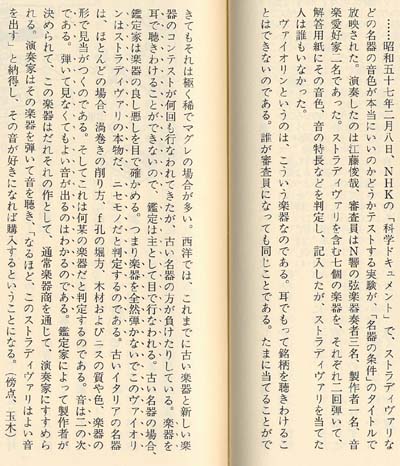 ……昭和五十七年二月八日、NHKの「科学ドキュメント」で、ストラディヴァリな
どの名器の音色が本当にいいのかどうかテストする実験が、「名器の条件」のタイトルで
放映された。演奏したのは江藤俊哉、審査員はN響の弦楽器奏者三名、製作者一名、音
楽愛好家二名であった。ストラディヴァリを含む七個の楽器を、それぞれ二回弾いて、
解答用紙にその音色、音の特長などを判定し、記入したが、ストラディヴァリを当てた
人は誰もいなかった。
ヴァイオリンというのは、こういう楽器なのである。耳でもって銘柄を聴きわけるこ
とはできないのである。誰が審査員になっても同じことである。たまに当てることがで
きてもそれは極く稀でマグレの場合が多い。西洋では、これまでに古い楽器と新しい楽
器のコンテストが何回も行なわれてきたが、古い名器の方が負けたりしている。楽器を
耳で聴きわけることができないので、鑑定は主として目で行なわれる。古い名器の場合、
鑑定家は楽器の良し悪しを目で確かめる。つまり楽器を全然弾かないでこのヴァイオリ
ンはストラディヴァリの本物だ、ニセモノだと判定するのである。古いイタリアの名器
は、ほとんどの場合、渦巻きの削り方、f孔の堀方、木材およびニスの質や色、楽器の
形で見当がつくのである。そしてこれは何某の楽器だと判定するのである。音は二の次
である。弾いて見なくてもよい音が出るのはわかるのである。鑑定家によって製作者が
決められて、この楽器はだれそれの作として、通常楽器商を通じて、演奏家にすすめら
れる。演奏家はその楽器を弾いて音を聴き、「なるほど、このストラディヴァリはよい音
を出す」と納得し、その音が好きになれば購入するということになる。(傍点、玉木)